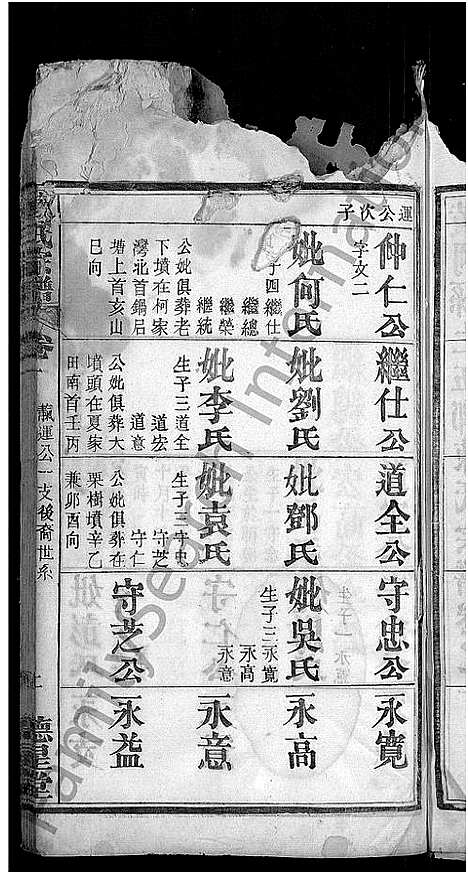 運公次子
仲仁公
字文二
妣何氏
子四繼仕
繼總
繼榮
繼統
公妣俱葬老
下墳在柯家
灣北首鍋㞐
塘上首亥山
巳向
繼仕公
妣劉氏
妣李氏
生子三道全
道宏
道意
公妣俱葬大
墳頭在夏家
田南首壬丙
道全公
妣鄧氏
妣袁氏
生子三守忠
守芝
守仁
公妣俱葬在
栗樹墳辛乙
兼卯酉向
守忠公
妣吳氏
生子三永寬
永高
永意
守芝公
永寬
永高
永意
永益
氏宗譜
卷
載運公一支後裔世系
德星堂
Family Search International